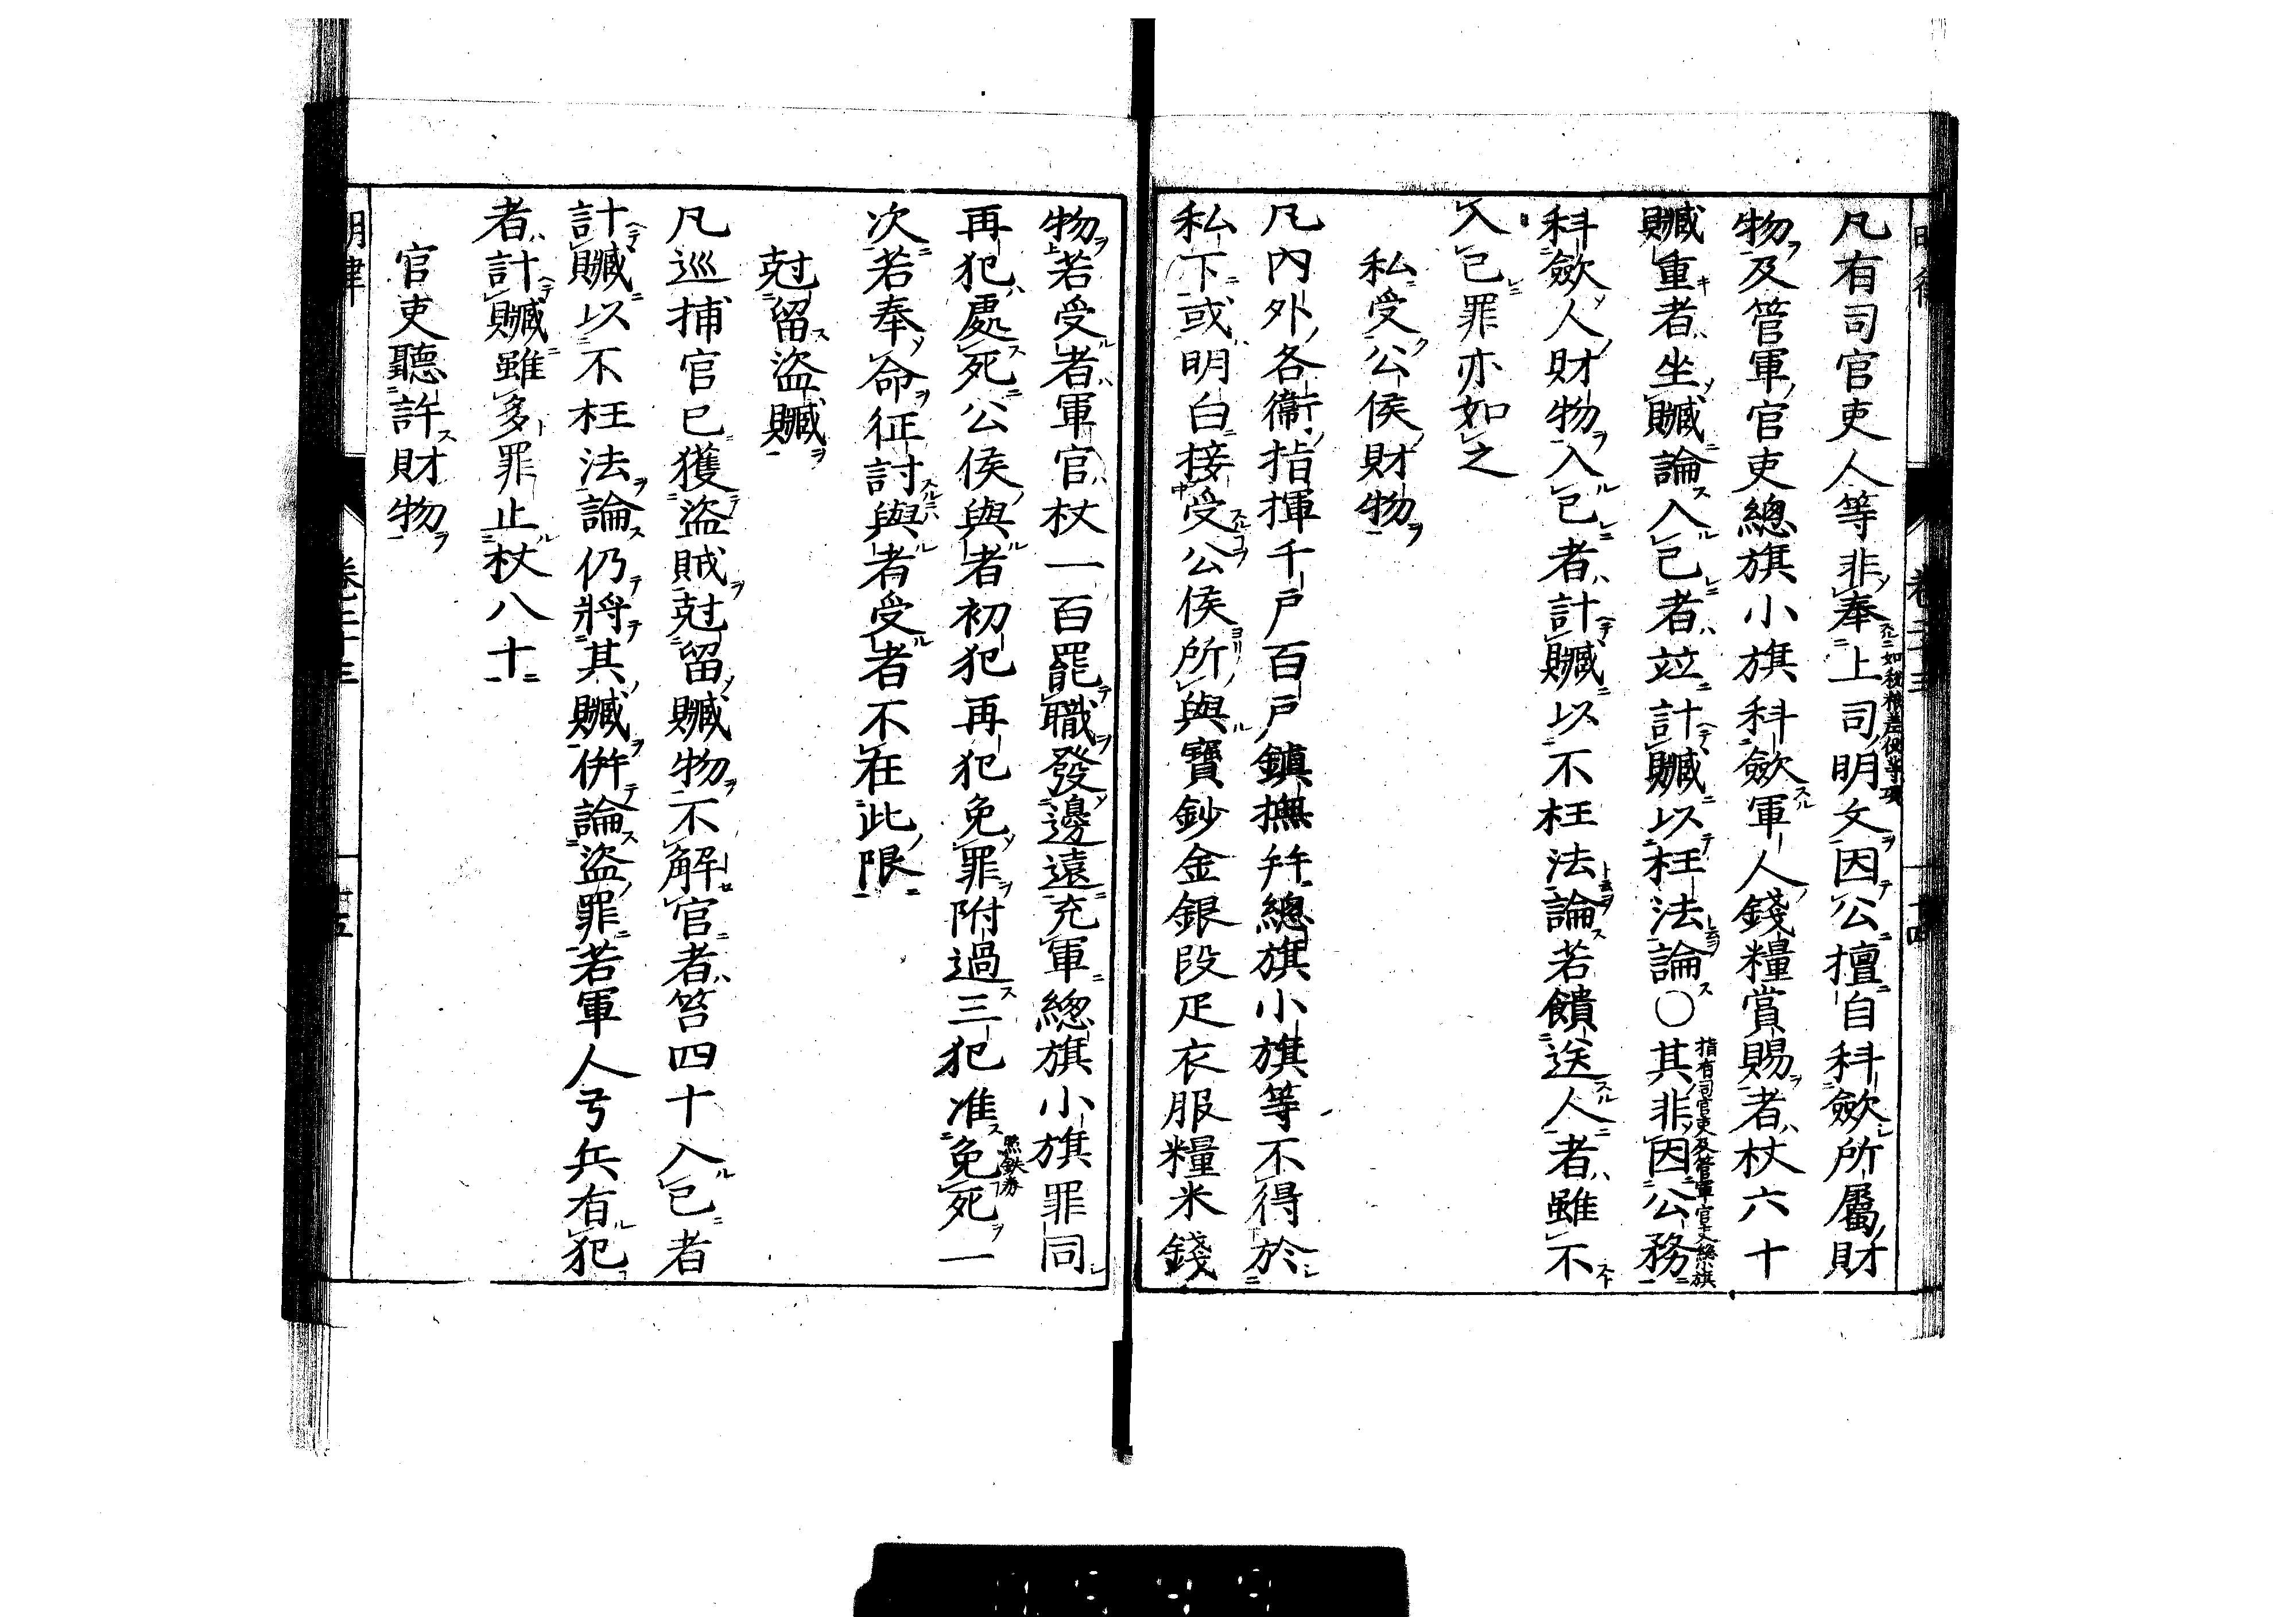 凡有司官吏人等非奉上司明文因公擅自科斂所屬財
如秋粮差使等項
物及管軍官吏總旗小旗科斂軍人錢糧賞賜者杖六十
贓重者坐贓論入己者竝計贓以枉法論〇其非因公務
指有司官吏及管軍官吏總旗
科斂人財物入己者計贓以不枉法論若饋送人者雖不
入己罪亦如之
私受公侯財物
凡內外各衞指揮千戸百戸鎮撫幷總旗小旗等不得於
私下或明白接受公侯所與寶鈔金銀段疋衣服糧米錢
物若受者軍官杖一百罷職發邊遠充軍總旗小旗罪同
再犯處死公侯與者初犯再犯免罪附過三犯准免死一
照鉄券
次若奉命征討與者受者不在此限
尅留盜贓
凡巡捕官已獲盜賊尅留贓物不解官者笞四十入己者
計贓以不枉法論仍將其贓併論盜罪若軍人弓兵有犯
者計贓雖多罪止杖八十
官吏聽許財物
明律 卷二十三 十五